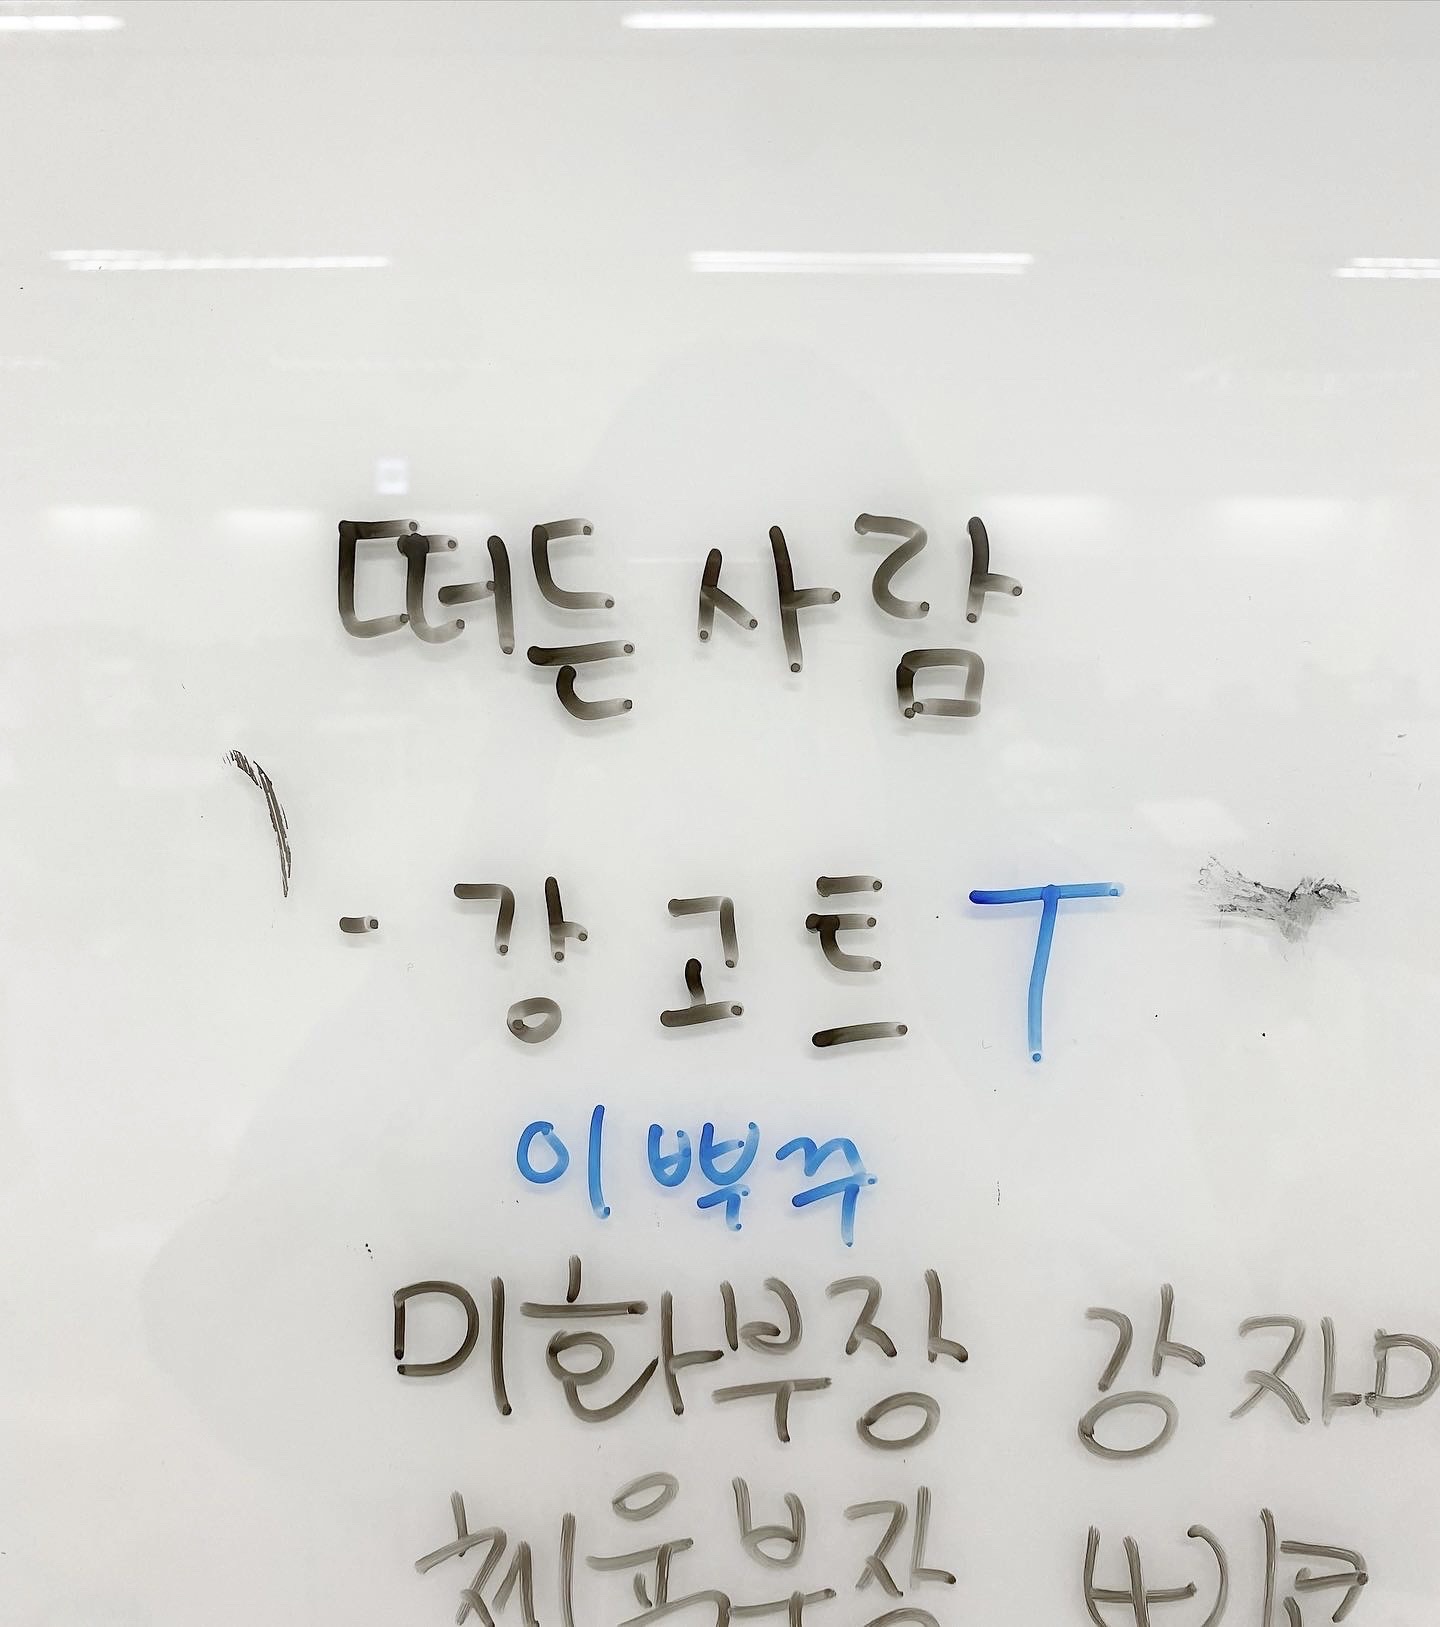 떠든 사람
- 강 고 트 T
이 쁘 쭈
미화부장 강
체육부장